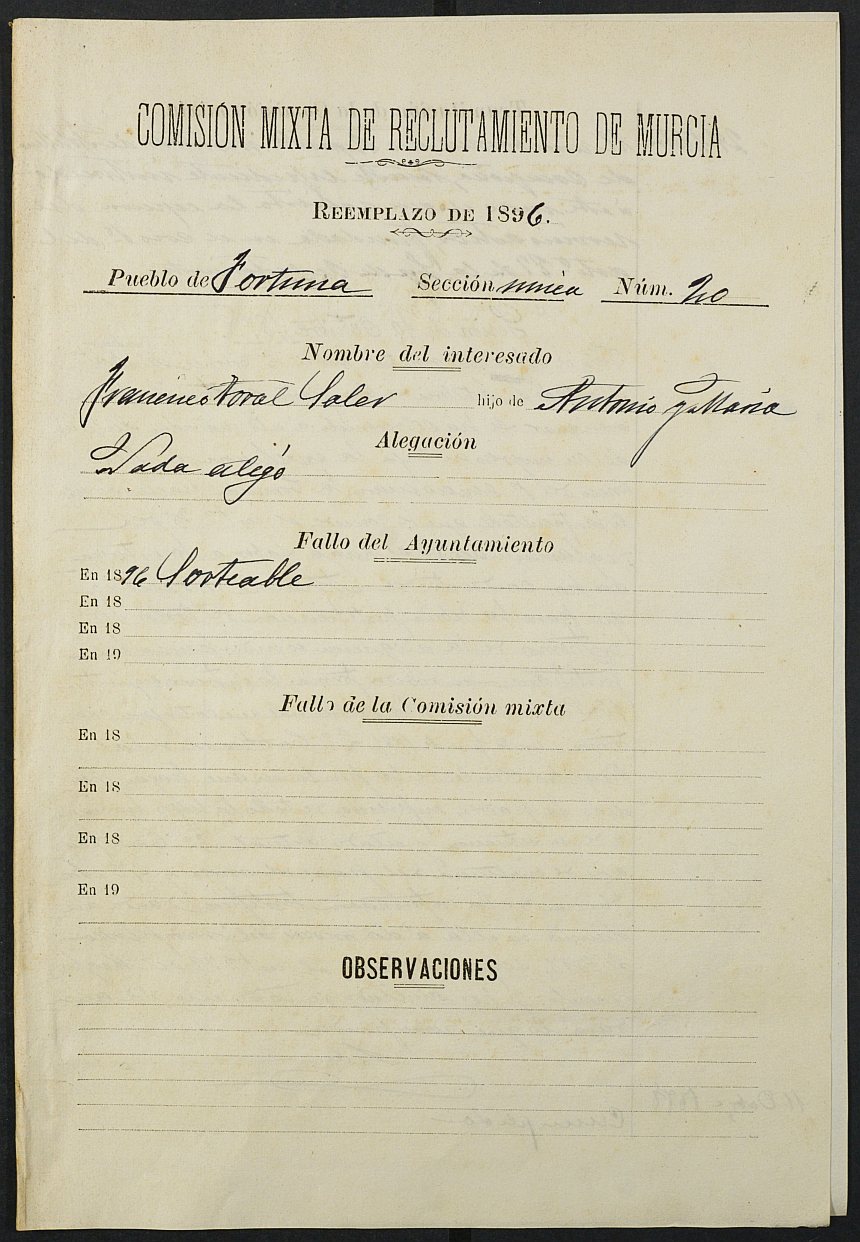 COMISIÓN MIXTA DE RECLUTAMIENTO DE MURCIA
REEMPLAZO DE 1896.
Pueblo de Fortuna Sección única Núm. 20
Nombre del interesado
Francisco Toral Soler hijo de Antonio y María
Alegación
Nada alegó
Fallo del Ayuntamiento
En 1896 Sorteable
En 18
En 18
En 19
Fallo de la Comisión mixta
En 18
En 18
En 18
En 19
OBSERVACIONES